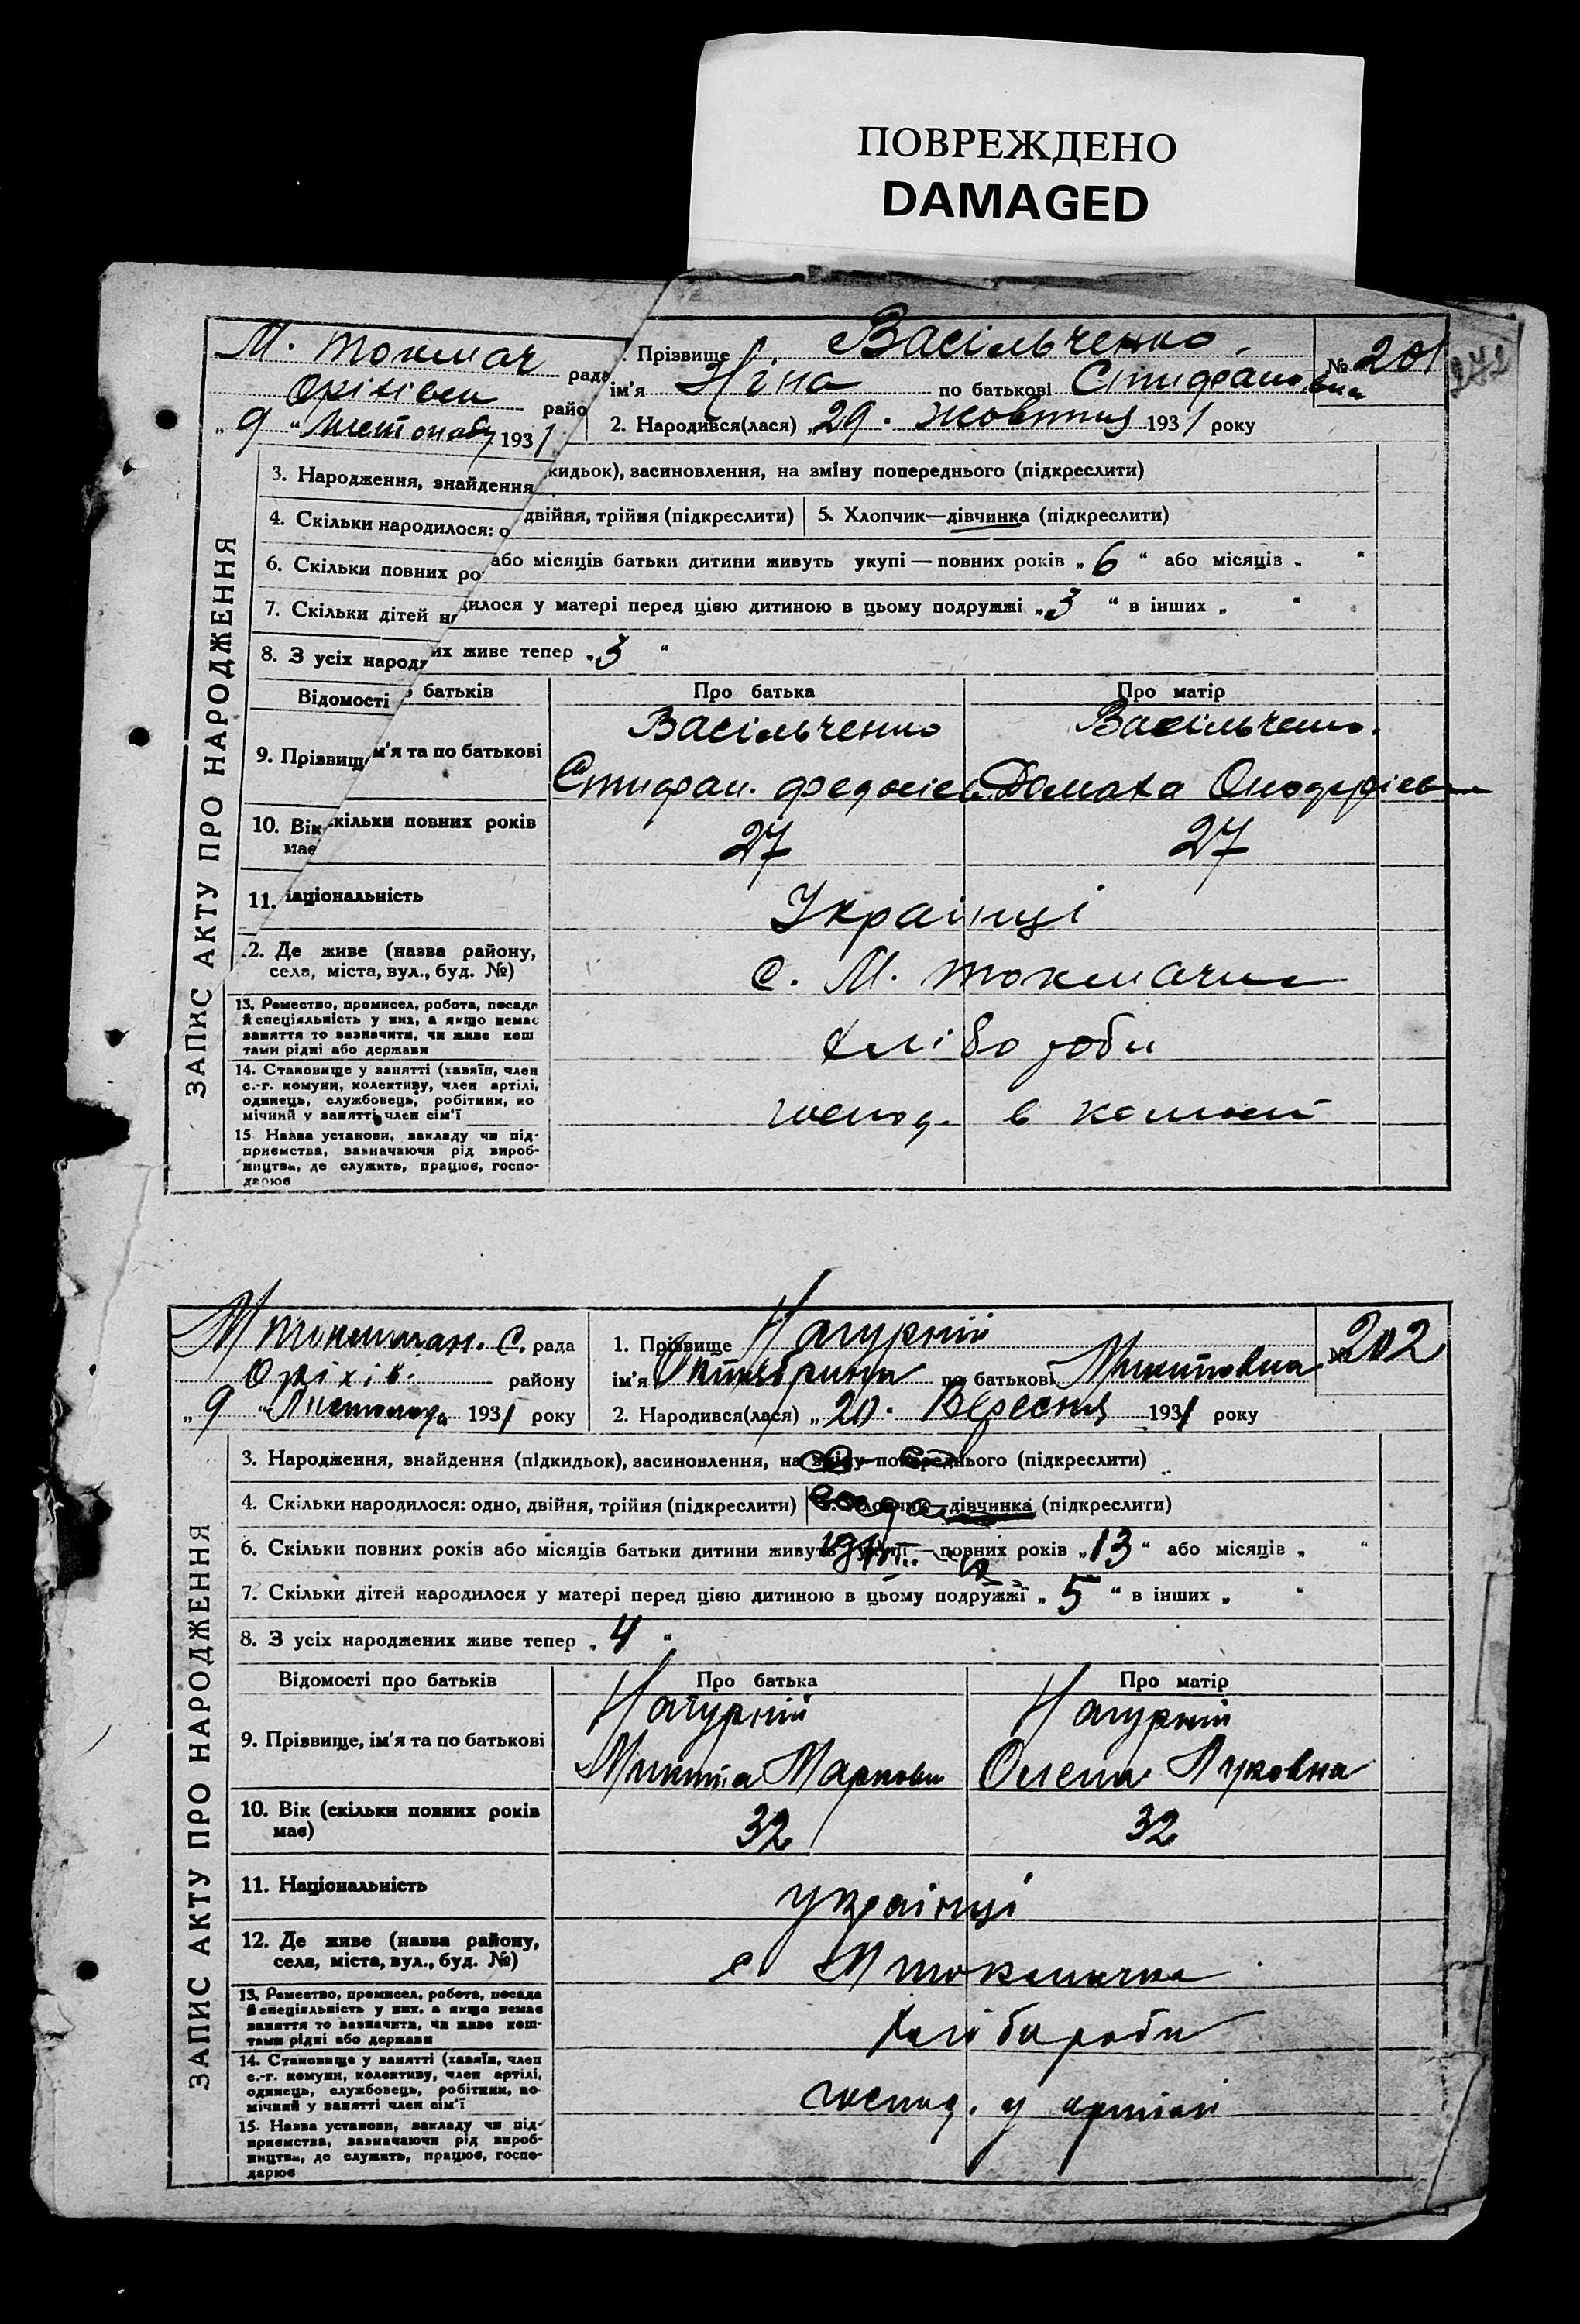 ПОВРЕЖДЕНО
DAMAGED
М. Токмач рада
Оріхівськ райо
„ 9 " Листопаду 1931
Прізвище Васільченко
№ 201
ім'я Ніна по батькові Стифановна
2. Народився(лася) „29. жовтня 1931 року
ЗАПИС АКТУ ПРО НАРОДЖЕННЯ
3. Народження, знайдення кидьок), засиновлення, на зміну попереднього (підкреслити)
4. Скільки народилося: о двійня, трійня (підкреслити) 5. Хлопчик—дівчинка (підкреслити)
6. Скільки повних ро або місяців батьки дитини живуть укупі — повних років „ 6 " або місяців „ "
7. Скільки дітей н илося у матері перед цією дитиною в цьому подружжі „ 3 " в інших „ "
8. З усіх народ их живе тепер „ 3 "
Відомості о батьків Про батька Про матір
9. Прізвищ м'я та по батькові
Васільченко Васільченко
Стифан. Федосієв. Домаха Онофрієв
10. Вік скільки повних років
має
27 27
11. аціональність
Українці
2. Де живе (назва району,
села, міста, вул., буд. №)
с. М. Токмачка
13. Ремество, промисел, робота, посада
й спеціяльність у них, а якщо немає
заняття то зазначити, чи живе кош
тами рідні або держави
хліборобы
14. Становище у занятті (хазяїн, член
с.-г. комуни, колективу, член артілі,
одинець, службовець, робітник, по
мічний у занятті член сім'ї
господ. в
15 Назва установи, закладу чи під-
приємства, зазначаючи рід вироб-
ництва, де служить, працює, госпо-
дарює
М Токмачан. С. рада
Оріхів. району
„ 9 " Листопада 1931 року
1. Прізвище Нагурній
№ 202
ім'я Октябрина по батькові Микитовна
2. Народився(лася) „ 20. Вересня 1931 року
ЗАПИС АКТУ ПРО НАРОДЖЕННЯ
3. Народження, знайдення (підкидьок), засиновлення, на зміну попереднього (підкреслити)
4. Скільки народилося: одно, двійня, трійня (підкреслити) 5. Хлопчик—дівчинка (підкреслити)
6. Скільки повних років або місяців батьки дитини живуть укупі — повних років „ 13 " або місяців „ "
7. Скільки дітей народилося у матері перед цією дитиною в цьому подружжі „ 5 " в інших „ "
8. З усіх народжених живе тепер „ 4 "
Відомості про батьків Про батька Про матір
9. Прізвище, ім'я та по батькові
Нагурній Нагурній
Микита Маркови Олена Луковна
10. Вік (скільки повних років
має)
32 32
11. Національність
українці
12. Де живе (назва району,
села, міста, вул., буд. №)
с. М Токмачка
13. Ремество, промисел, робота, посада
й спеціяльність у них, а якщо немає
заняття то зазначити, чи живе кош-
тами рідні або держави
хлібороби
14. Становище у занятті (хазяїн, член
с.-г. комуни, колективу, член артілі,
одинець, службовець, робітник, по
мічний у занятті член сім'ї
господ. у артілі
15. Назва установи, закладу чи під-
приємства, зазначаючи рід вироб-
ництва, де служить, працює, госпо-
дарює